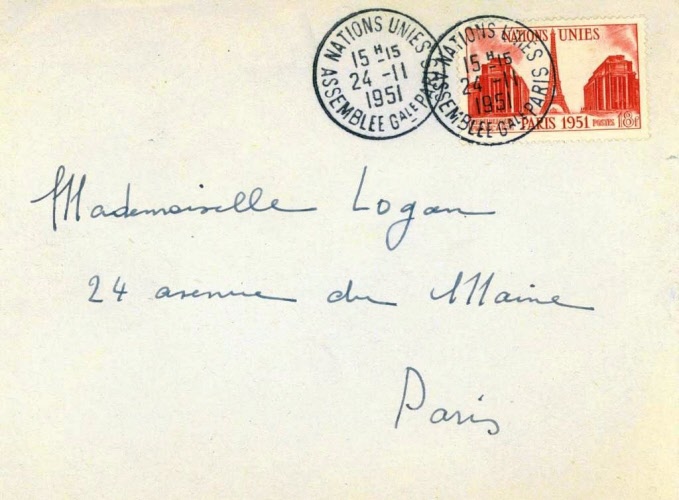 NATIONS UNIES
15 H 15
24 -11
1951
ASSEMBLEE GALE PARIS
NATIONS UNIES
15 H 15
24 -11
1951
ASSEMBLEE GALE PARIS
NATIONS UNIES
PARIS 1951 POSTES 18F
Mademoiselle Logan
24 avenue du Maine
Paris